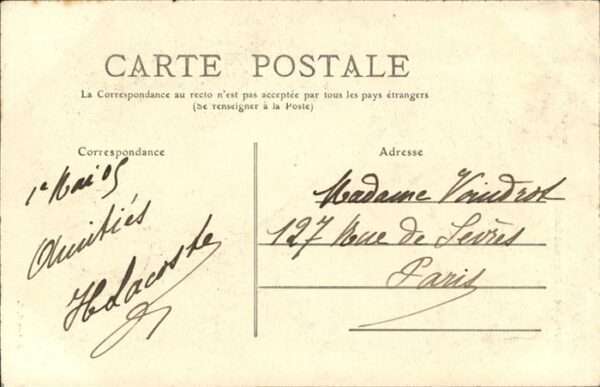 CARTE POSTALE
La Correspondance au recto n'est pas acceptée par tous les pays étrangers
(Se renseigner à la Poste)
Correspondance
Adresse
1e Mai 05
Amitiés
HLacoste
Madame Vaudrot
127 Rue de Sèvres
Paris